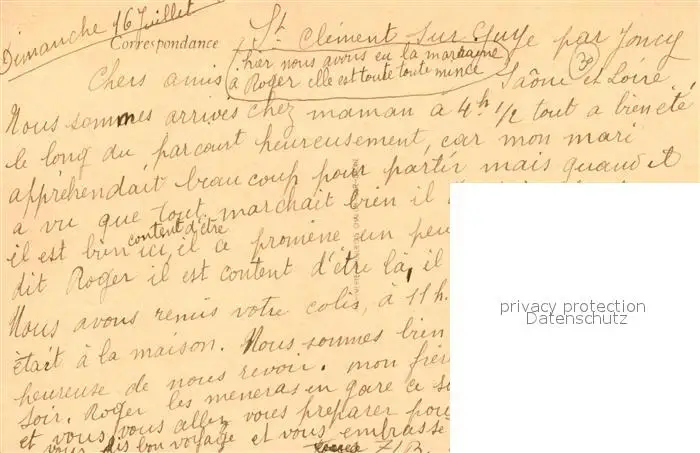 Dimanche 16 Juillet
St Clément sur Guye par Joncy
Saône et Loire
Correspondance
hier nous avons eu la marraine
a Roger elle est toute toute mince
Chers amis
Nous sommes arrives chez maman a 4h 1/2 tout a bien été
le long du parcourt heureusement, car mon mari
appréhendait beaucoup pour partir mais quand it
a vu que tout marchait bien il
content d'être
il est bien ici, il ce promène un peu
dit Roger il est content d'être là, il
Nous avons remis votre colis, à 11h.
était à la maison. Nous sommes bien
heureuse de nous revoir. mon
soir. Roger les meneras en gare ce
et vous vous allez vous preparer pou
vous dis bon voyage et vous embrasse
privacy protection
Datenschutz